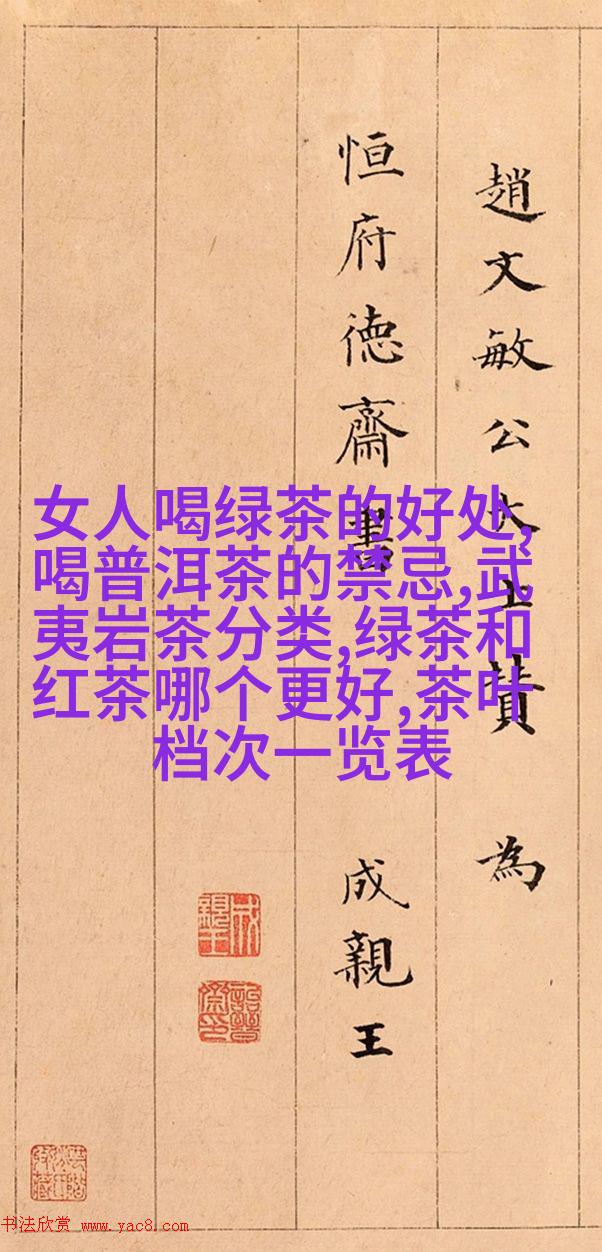 趙文敏公大士贊為
恒府德齋書
成親王
女人喝绿茶的好处,
喝普洱茶的禁忌,武
夷岩茶分类,绿茶和
红茶哪个更好,茶叶
档次一览表
成親王
詒晉齋印
书法欣赏 www.yac8.com